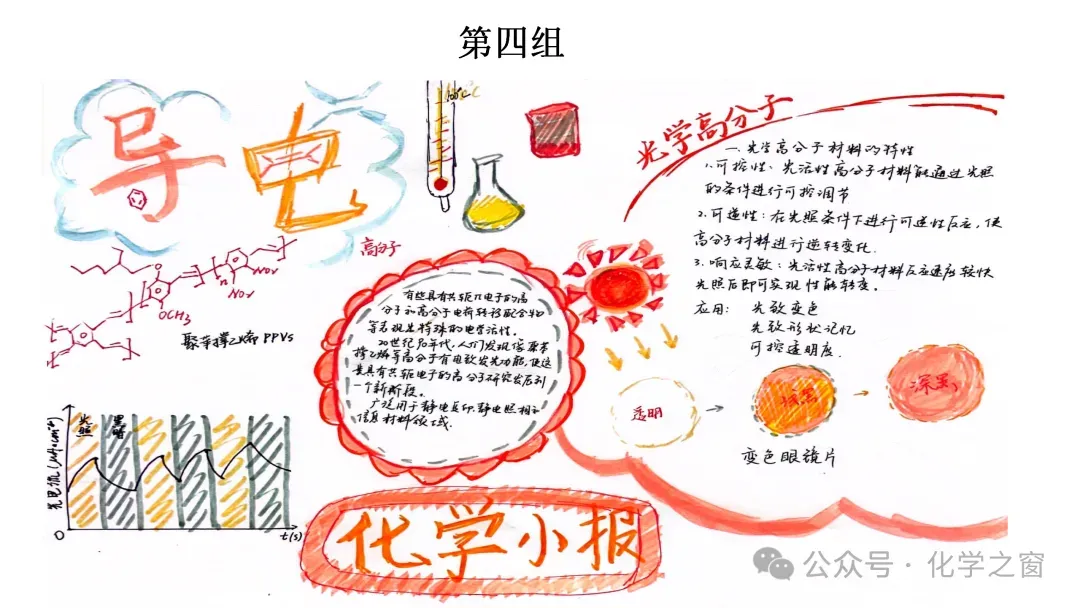 第四组
导电
高分子
100℃
NO₂
NO₂
n
OCH3
聚苯撑乙烯 PPVs
有些具有共轭π电子的高
分子和高分子电荷转移配合物
等表现出特殊的电学活性。
20世纪90年代,人们发现像聚苯
撑乙烯等高分子有电致发光功能,使这
类具有共轭电子的高分子研究发展到
一个新阶段。
广泛用于静电复印、静电照相和
信息材料领域.
光学高分子
一.光学高分子材料的特性
1.可控性:光活性高分子材料能通过光照
的条件进行可控调节
2.可逆性:在光照条件下进行可逆性反应,使
高分子材料进行逆转变化.
3.响应灵敏:光活性高分子材料反应速度较快
光照后即可实现性能转变。
应用: 光致变色
光致形状记忆
可控透明度.
透明
浅黑
深黑
变色眼镜片
光照
黑暗
光照电流
0
t(s)
化学小报
公众号·化学之窗